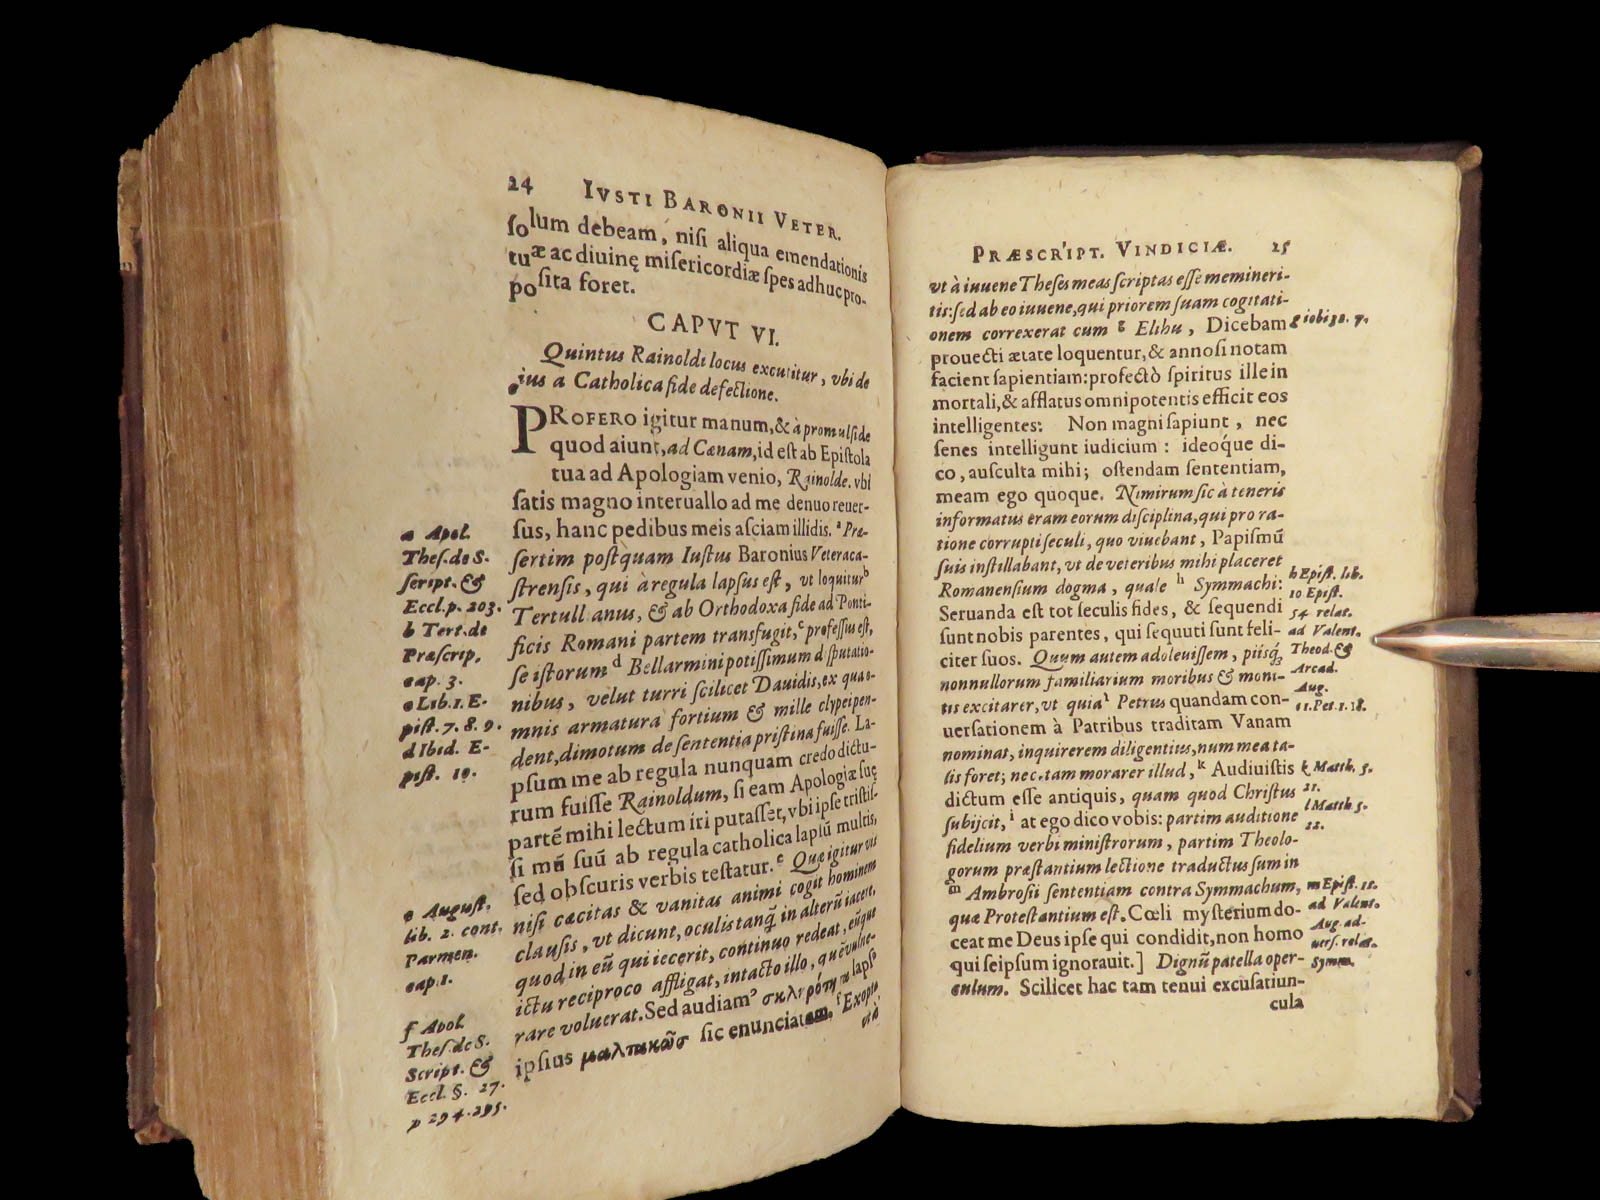 24 IVSTI BARONII VETER.
ſolum debeam, niſi aliqua emendationis
tuæ ac diuinę miſericordiæ ſpes adhuc pro-
poſita foret.
CAPVT VI.
Quintus Rainoldi locus excutitur, vbi de
eius a Catholica fide defectione.
PROFERO igitur manum, & à promulſide
quod aiunt, ad Cœnam, id eſt ab Epiſtola
tua ad Apologiam venio, Rainolde. vbi
ſatis magno interuallo ad me denuo reuer-
ſus, hanc pedibus meis aſciam illidis. a Præ-
ſertim poſtquam Iuſtus Baronius Veteraca-
ſtrenſis, qui à regula lapſus eſt, vt loquitur b
Tertullianus, & ab Orthodoxa fide ad Ponti-
ficis Romani partem transfugit, c profeſſus eſt,
ſe iſtorum d Bellarmini potiſſimum diſputatio-
nibus, velut turri ſcilicet Dauidis, ex qua o-
mnis armatura fortium & mille clypei pen-
dent, dimotum de ſententia priſtina fuiſſe. La-
pſum me ab regula nunquam credo dictu-
rum fuiſſe Rainoldum, ſi eam Apologiæ ſuę
partē mihi lectum iri putaſſet, vbi ipſe triſtiſ-
ſi mū ſuū ab regula catholica lapſū multis,
ſed obſcuris verbis teſtatur. e Quæ igitur vis
niſi cæcitas & vanitas animi cogit hominem
clauſis, vt dicunt, oculis tanq; in alterū iacere,
quod, in eū qui iecerit, continuo redeat, eūque
ictu reciproco affligat, intacto illo, quē vulne-
rare voluerat. Sed audiam' σκληρότητα lapſo
ipſius μαλτακῶς ſic enunciatam. f Exopto
vt à
a Apol.
Theſ. de S.
ſcript. &
Eccl. p. 203.
b Tert. de
Præſcrip.
cap. 3.
c Lib. 1. E-
piſt. 7. 8. 9.
d Ibid. E-
piſt. 10.
e Auguſt.
lib. 2. cont.
Parmen.
cap. 1.
f Apol.
Theſ. de S.
Script. &
Eccl. §. 27.
p 294. 295.
PRÆSCRIPT. VINDICIÆ. 25
vt à iuuene Theſes meas ſcriptas eſſe memineri-
tis: ſed ab eo iuuene, qui priorem ſuam cogitati-
onem correxerat cum g Elihu, Dicebam
prouecti ætate loquentur, & annoſi notam
facient ſapientiam: profectò ſpiritus ille in
mortali, & afflatus omnipotentis efficit eos
intelligentes: Non magni ſapiunt, nec
ſenes intelligunt iudicium: ideóque di-
co, auſculta mihi; oſtendam ſententiam,
meam ego quoque. Nimirum ſic à teneris
informatus eram eorum diſciplina, qui pro ra-
tione corrupti ſeculi, quo viuebant, Papiſmū
ſuis inſtillabant, vt de veteribus mihi placeret
Romanenſium dogma, quale h Symmachi:
Seruanda eſt tot ſeculis fides, & ſequendi
ſunt nobis parentes, qui ſequuti ſunt feli-
citer ſuos. Quum autem adoleuiſſem, piisq́;
nonnullorum familiarium moribus & moni-
tis excitarer, vt quia i Petrus quandam con-
uerſationem à Patribus traditam Vanam
nominat, inquirerem diligentius, num mea ta-
lis foret; nec tam morarer illud, k Audiuiſtis
dictum eſſe antiquis, quam quod Chriſtus
ſubijcit, l at ego dico vobis: partim auditione
fidelium verbi miniſtrorum, partim Theolo-
gorum præſtantium lectione traductus ſum in
m Ambroſii ſententiam contra Symmachum,
quæ Proteſtantium eſt. Cœli myſterium do-
ceat me Deus ipſe qui condidit, non homo
qui ſeipſum ignorauit.] Dignū patella oper-
culum. Scilicet hac tam tenui excuſatiun-
cula
g iobi 32. 7.
h Epiſt. lib.
10 Epiſt.
54 relat.
ad Valent.
Theod. &
Arcad.
Aug.
i 1. Pet. 1. 18.
k Matth. 5.
21.
l Matth. 5.
22.
m Epiſt. 12.
ad Valent.
Aug. ad-
uerſ. relat.
Symm.